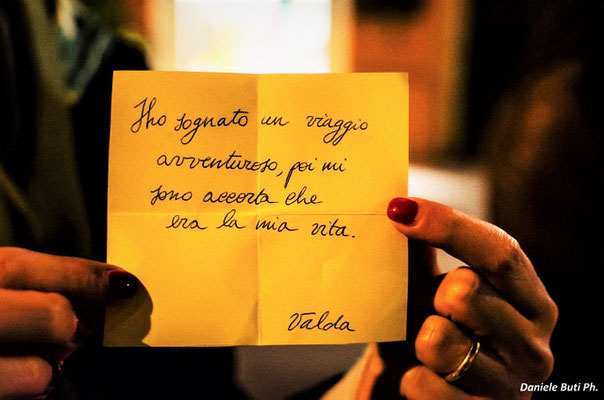 Ho sognato un viaggio
avventuroso, poi mi
sono accorta che
era la mia vita.
Valda
Daniele Buti Ph.